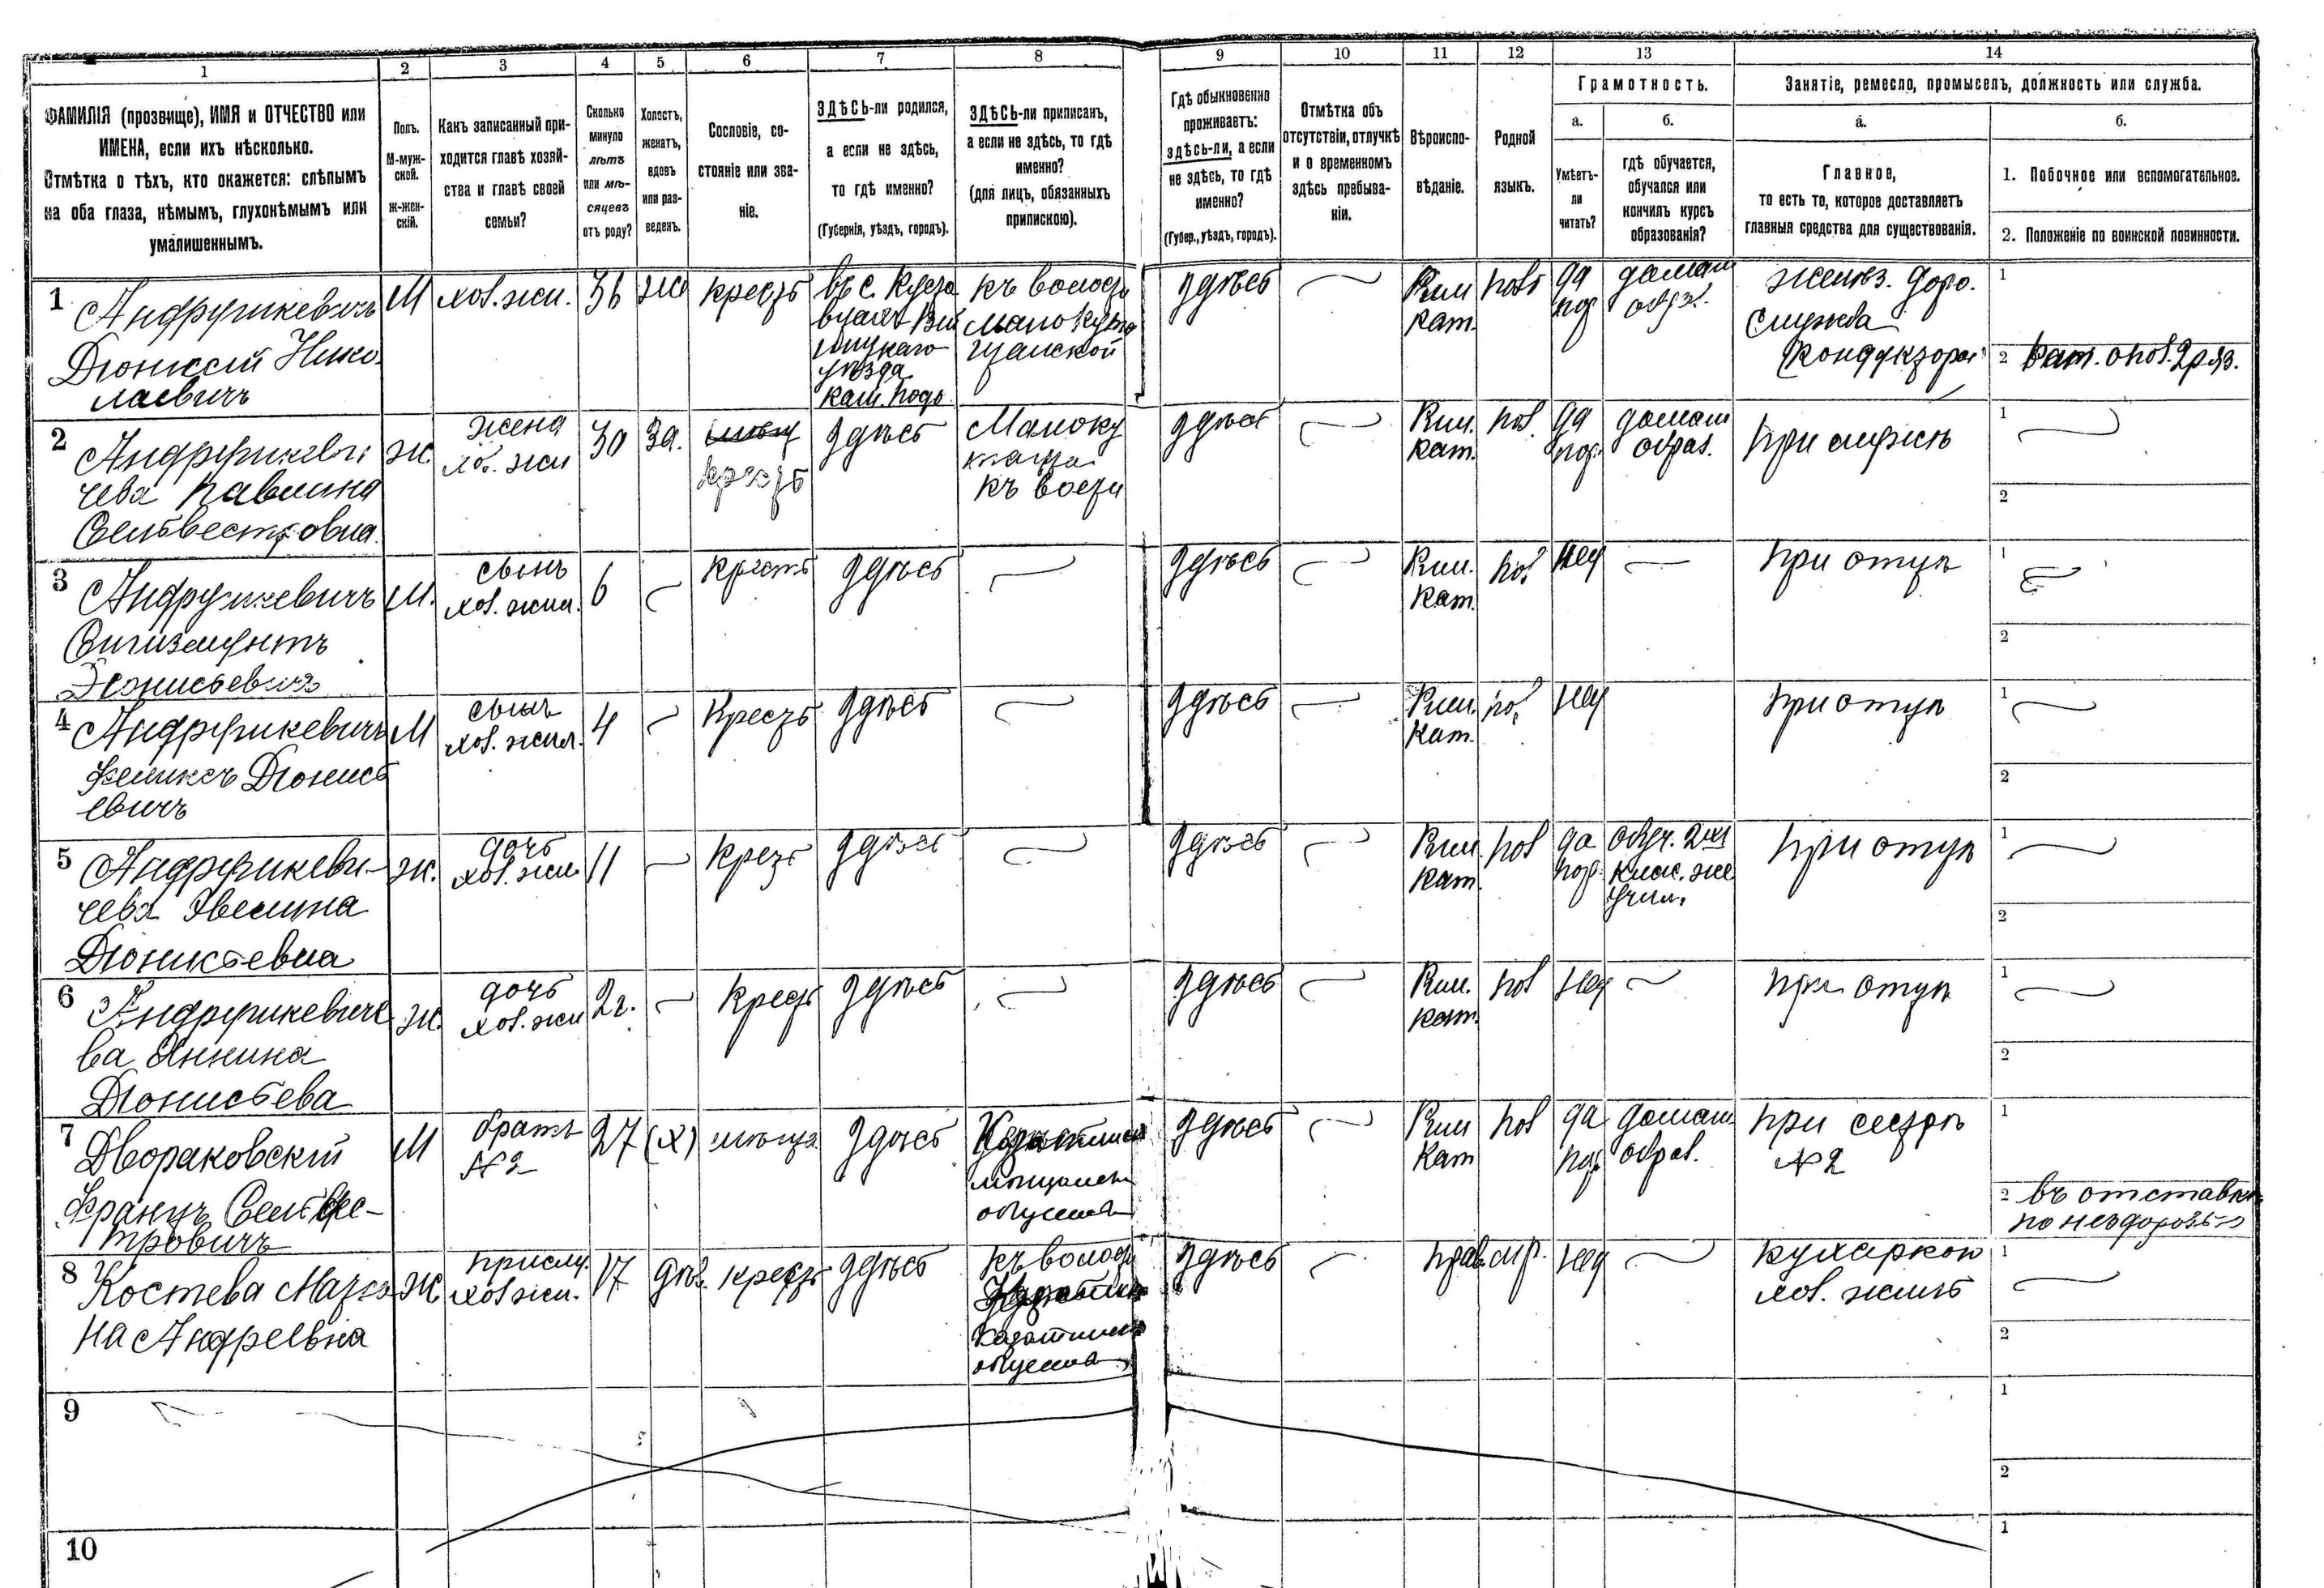 1
2
3
4
5
6
7
8
9
10
11
12
13
14
ФАМИЛІЯ (прозвище), ИМЯ и ОТЧЕСТВО или
ИМЕНА, если ихъ нѣсколько.
Отмѣтка о тѣхъ, кто окажется: слѣпымъ
на оба глаза, нѣмымъ, глухонѣмымъ или
умалишеннымъ.
Полъ.
М-муж-
ской.
Ж-жен-
скій.
Какъ записанный при-
ходится главѣ хозяй-
ства и главѣ своей
семьи?
Сколько
минуло
лѣтъ
или мѣ-
сяцевъ
отъ роду?
Холостъ,
женатъ,
вдовъ
или раз-
веденъ.
Сословіе, со-
стояніе или зва-
ніе.
ЗДѢСЬ-ли родился,
а если не здѣсь,
то гдѣ именно?
(Губернія, уѣздъ, городъ).
ЗДѢСЬ-ли приписан,
а если не здѣсь, то гдѣ
именно?
(для лицъ, обязанныхъ
припискою).
Гдѣ обыкновенно
проживаетъ:
здѣсь-ли, а если
не здѣсь, то гдѣ
именно?
(Губер., уѣздъ, городъ).
Отмѣтка объ
отсутствіи, отлучкѣ
и о временномъ
здѣсь пребыва-
ніи.
Вѣроиспо-
вѣданіе.
Родной
языкъ.
Грамотность.
а.
Умѣетъ-
ли
читать?
б.
гдѣ обучается,
обучался или
кончилъ курсъ
образованія?
Занятіе, ремесло, промыселъ, должность или служба.
а.
Главное,
то есть то, которое доставляетъ
главныя средства для существованія.
б.
1. Побочное или вспомогательное.
2. Положеніе по воинской повинности.
1
Андрушкевичъ
Діонисій Нико
лаевичъ
М
хоз. жи.
36
же
крест
уѣзда
Кам. Подо
къ волост
здѣсь
Рим
Кат.
пол
да
домаш
образ.
желѣз. доро.
служба
1
2
2
Андрушкеви
чева Павлина
Сельвестровна
ж.
жена
хоз. жи
30
за.
крест
здѣсь
здѣсь
Рим.
Кат.
пол
да
домаш
образ.
при мужѣ
1
2
3
Андрушкевичъ
Сигизмунтъ
Діонисьевич
М.
сынъ
хоз. жил.
6
крест
здѣсь
здѣсь
Рим.
Кат.
пол
нет
при отцѣ
1
2
4
Андрушкевичъ
Феликсъ Діонись
евичъ
М
сынъ
хоз. жил.
4
Крест
здѣсь
здѣсь
Рим.
Кат.
пол
нет
при отцѣ
1
2
5
Андрушкеви-
чева Эвелина
Діонисьевна
ж.
дочь
хоз. жи
11
Крест
здѣсь
здѣсь
Рим.
Кат.
пол
да
при отцѣ
1
2
6
Андрушкевиче
ва Яннина
Діонисьева
ж.
дочь
хоз. жи
2 г.
Крест
здѣсь
здѣсь
Рим.
Кат.
пол
нет
при отцѣ
1
2
7
Двораковскій
Францъ Сельвес-
тровичъ
М
братъ
№ 2
27
(х)
мѣща
здѣсь
здѣсь
Рим
Кат
пол
да
домаш.
образ.
при сестрѣ
№ 2
1
2 въ отставкѣ
по нездоровью
8
Костева
на Андреевна
ж
прислу.
хоз жи.
17
дѣв.
крест
здѣсь
къ волост
здѣсь
прав.
нет
кухаркою
хоз. жил
1
2
9
1
2
10
1